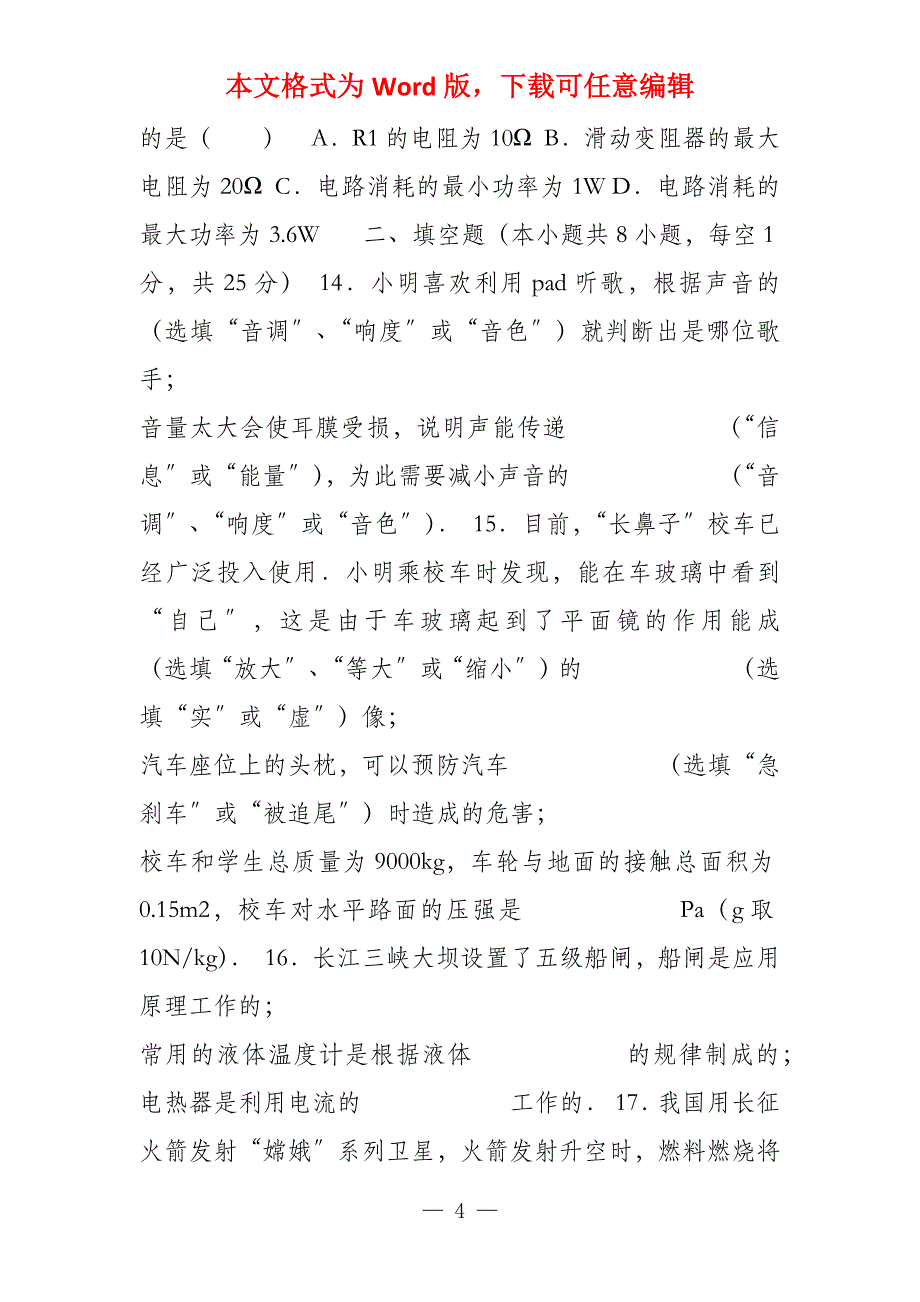 本文格式为 Word 版，下载可任意编辑
的是（　　）　A．R1 的电阻为 10Ω B．滑动变阻器的最大
电阻为 20Ω C．电路消耗的最小功率为 1W D．电路消耗的
最大功率为 3.6W　二、填空题（本小题共 8 小题，每空 1
分，共 25 分） 14．小明喜欢利用 pad 听歌，根据声音的
（选填“音调″、“响度″或“音色″）就判断出是哪位歌
手；
音量太大会使耳膜受损，说明声能传递　　　　　　（“信
息″或“能量″），为此需要减小声音的　　　　　　（“音
调″、“响度″或“音色″）． 15．目前，“长鼻子″校车已
经广泛投入使用．小明乘校车时发现，能在车玻璃中看到
“自己″，这是由于车玻璃起到了平面镜的作用能成
（选填“放大″、“等大″或“缩小″）的　　　　　　（选
填“实″或“虚″）像；
汽车座位上的头枕，可以预防汽车　　　　　　（选填“急
刹车″或“被追尾″）时造成的危害；
校车和学生总质量为 9000kg，车轮与地面的接触总面积为
0.15m2，校车对水平路面的压强是　　　　　　Pa（g 取
10N/kg）． 16．长江三峡大坝设置了五级船闸，船闸是应用
原理工作的；
常用的液体温度计是根据液体　　　　　　的规律制成的；
电热器是利用电流的　　　　　　工作的． 17．我国用长征
火箭发射“嫦娥″系列卫星，火箭发射升空时，燃料燃烧将
— 4 —